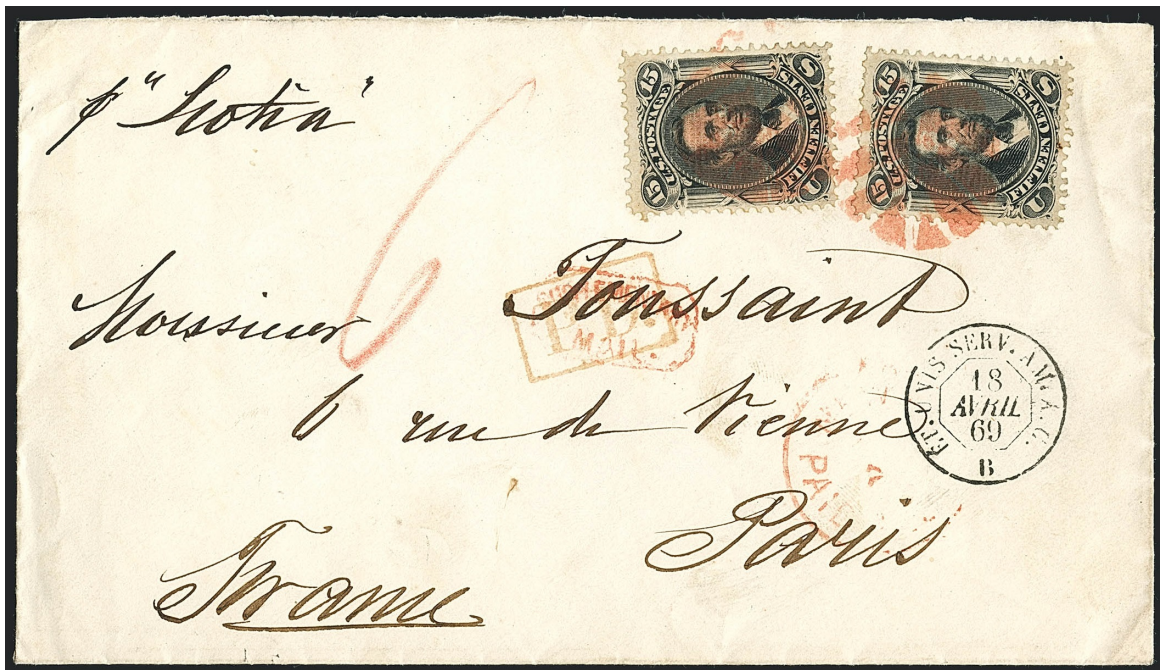 p "Scotia"
U.S. POSTAGE
15 15
FIFTEEN CENTS
U S
U.S. POSTAGE
15 15
FIFTEEN CENTS
U S
6
Monsieur Toussaint
P.D.
MAIL.
6 rue de Vienne
ET. UNIS SERV. AM. A. C.
18
AVRIL
69
B
PAID
Paris
France